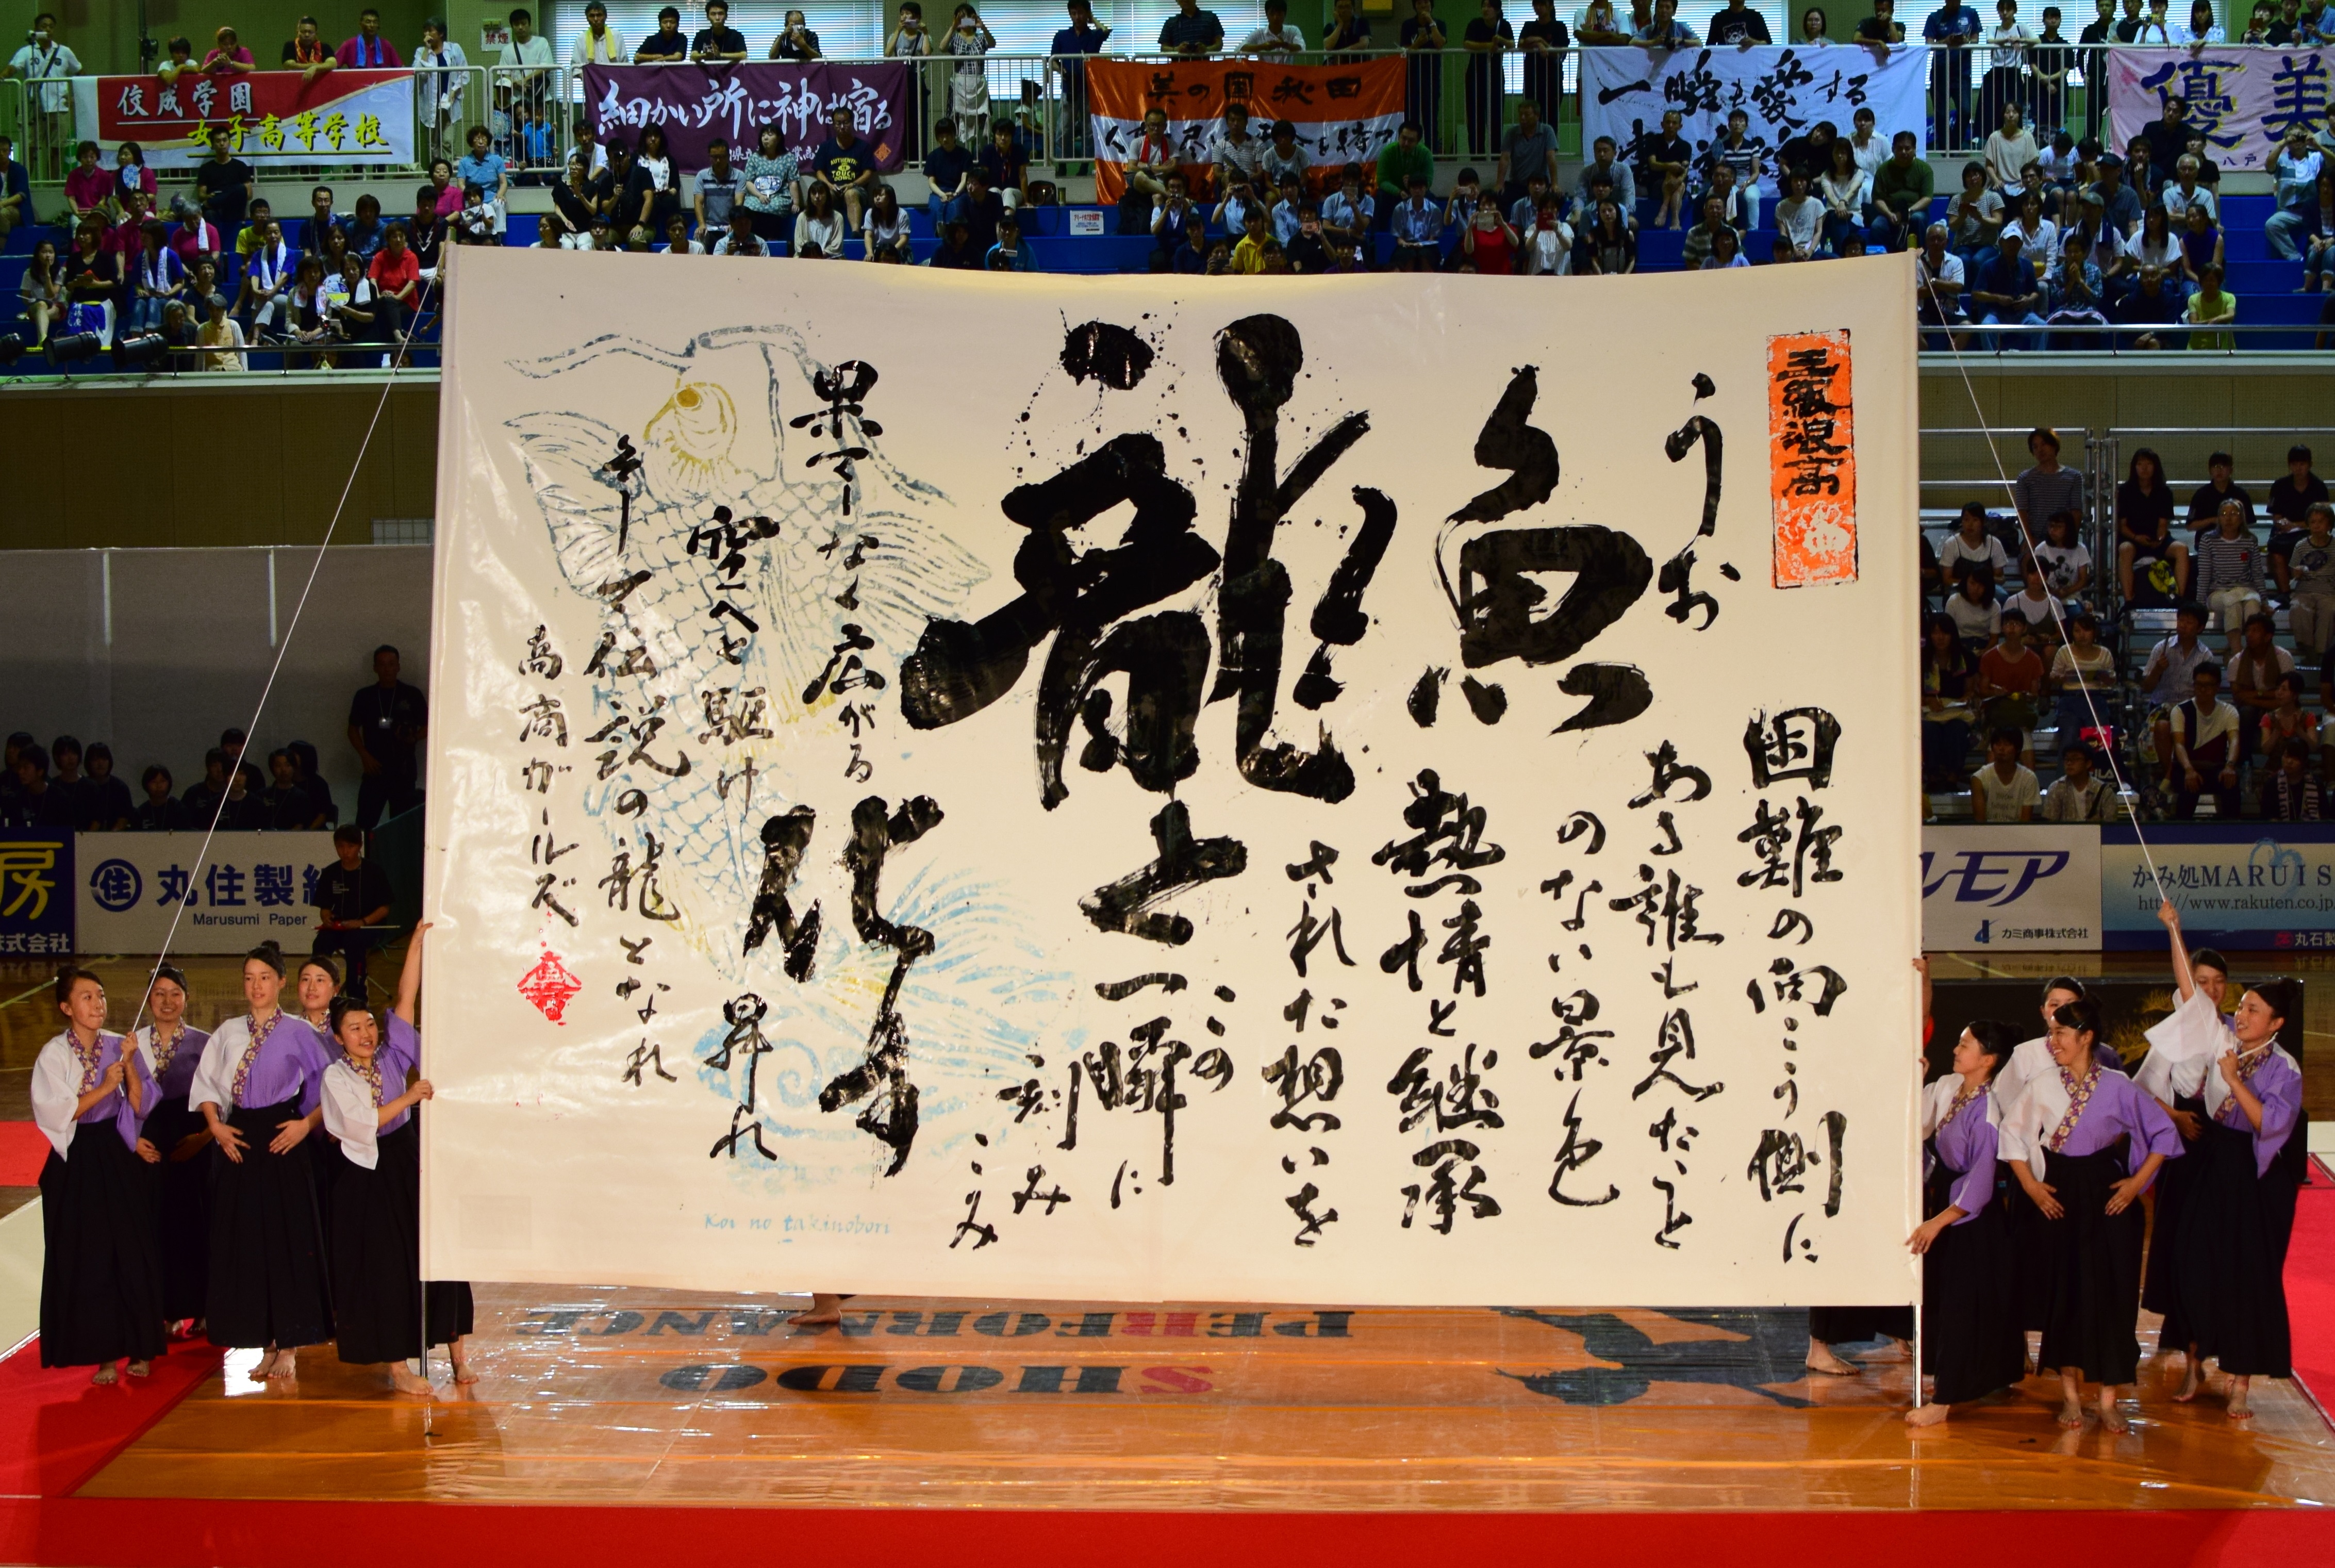 禁煙
佼成学園
女子高等学校
細かい所に神は宿る
美の国秋田
一瞬も愛する
優美
八戸
三級浪高
困難の向こう側に
ある誰も見たこと
のない景色
うお
魚
熱情と継承
された想いを
龍と
この
一瞬に
刻み
こみ
化す
果てなく広がる
空へと駆け昇れ
そして伝説の龍となれ
高商ガールズ
Koi no takinobori
房
株式会社
丸住製紙
Marusumi Paper
レモア
カミ商事株式会社
かみ処MARUIS
http://www.rakuten.co.jp/
丸石製
SHODO
PERFORMANCE